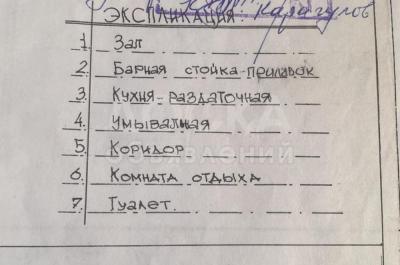 ЭКСПЛИКАЦИЯ
1 Зал
2 Барная стойка-прилавок
3. Кухня-раздаточная
4. Умывалная
5. Коридор
6. Комната отдыха
7. Туалет.